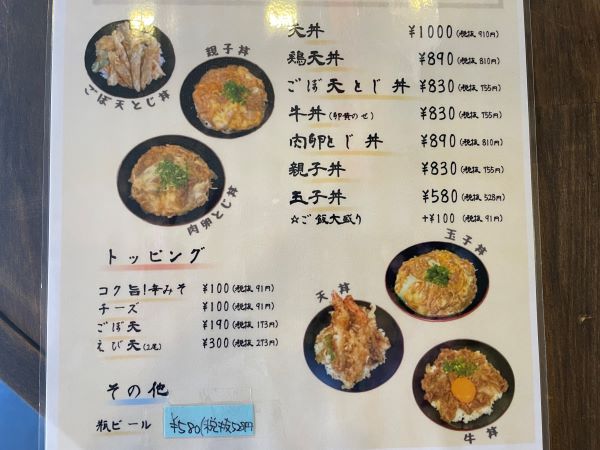 天丼 ¥1000(税抜 910円)
鶏天丼 ¥890(税抜 810円)
ごぼ天とじ丼 ¥830(税抜 755円)
牛丼(卵黄のせ) ¥830(税抜 755円)
肉卵とじ丼 ¥890(税抜 810円)
親子丼 ¥830(税抜 755円)
玉子丼 ¥580(税抜 528円)
☆ご飯大盛り +¥100(税抜 91円)
ごぼ天とじ丼
親子丼
肉卵とじ丼
トッピング
コク旨!辛みそ ¥100(税抜 91円)
チーズ ¥100(税抜 91円)
ごぼ天 ¥190(税抜 173円)
えび天(2尾) ¥300(税抜 273円)
その他
瓶ビール ¥580(税抜528円)
玉子丼
天丼
牛丼